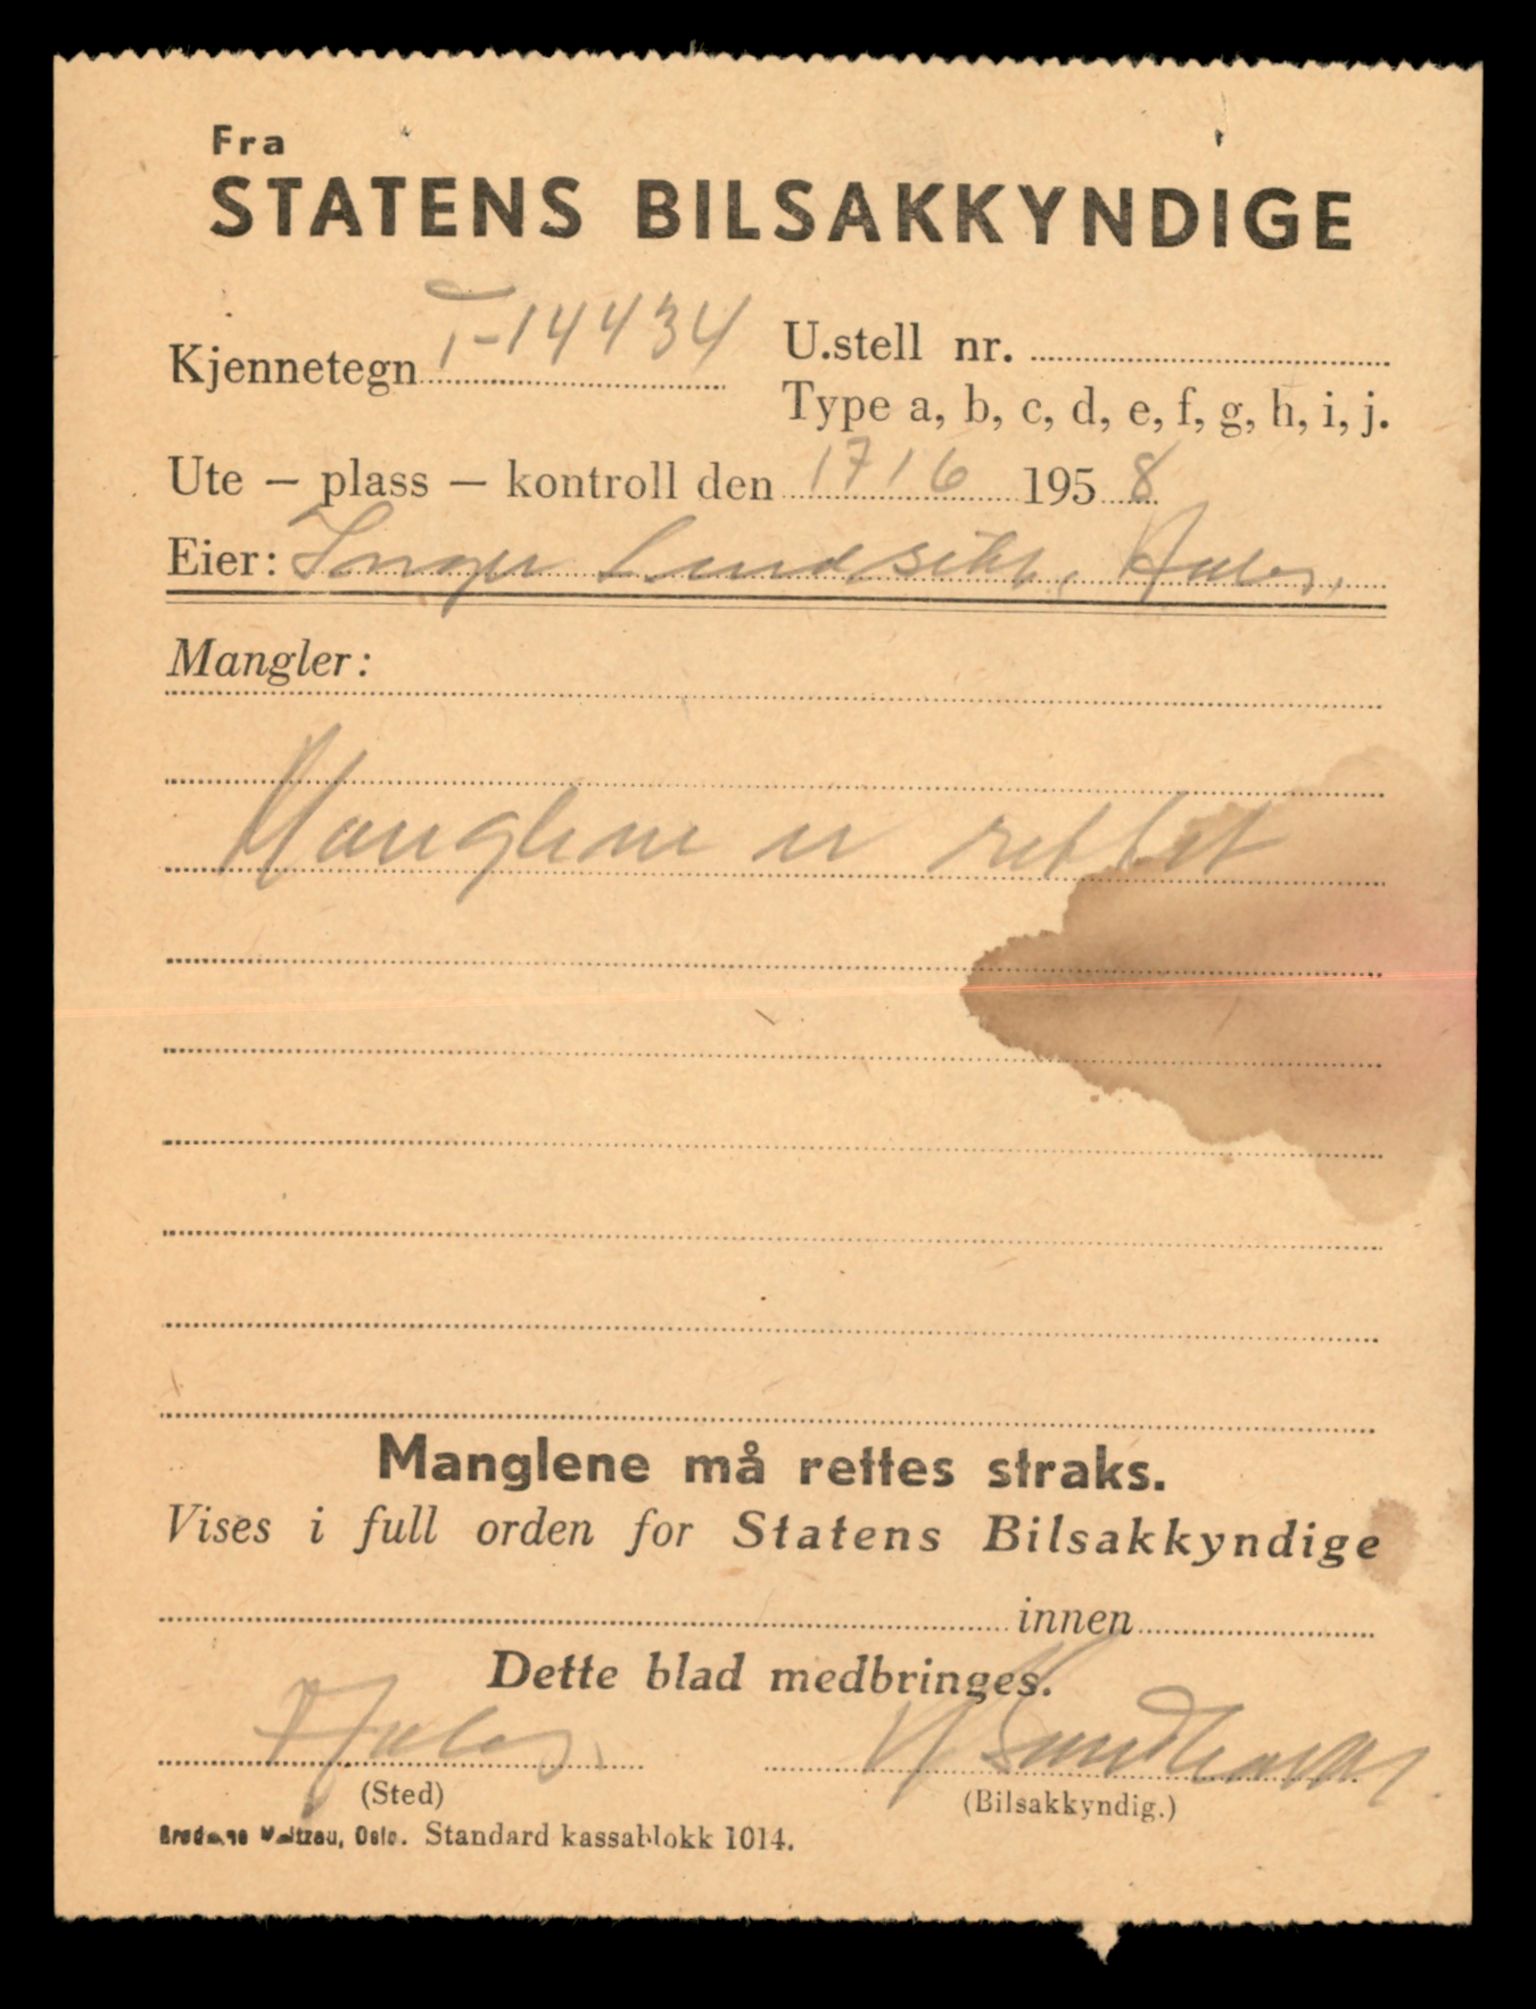 Fra
STATENS BILSAKKYNDIGE
Kjennetegn T-14434 U.stell nr.
Type a, b, c, d, e, f, g, h, i, j.
Ute — plass — kontroll den 17/6 1958
Eier: Inger
Mangler:
Manglene er rettet
Manglene må rettes straks.
Vises i full orden for Statens Bilsakkyndige
innen
Dette blad medbringes.
(Sted) (Bilsakkyndig.)
Oslo. Standard kassablokk 1014.